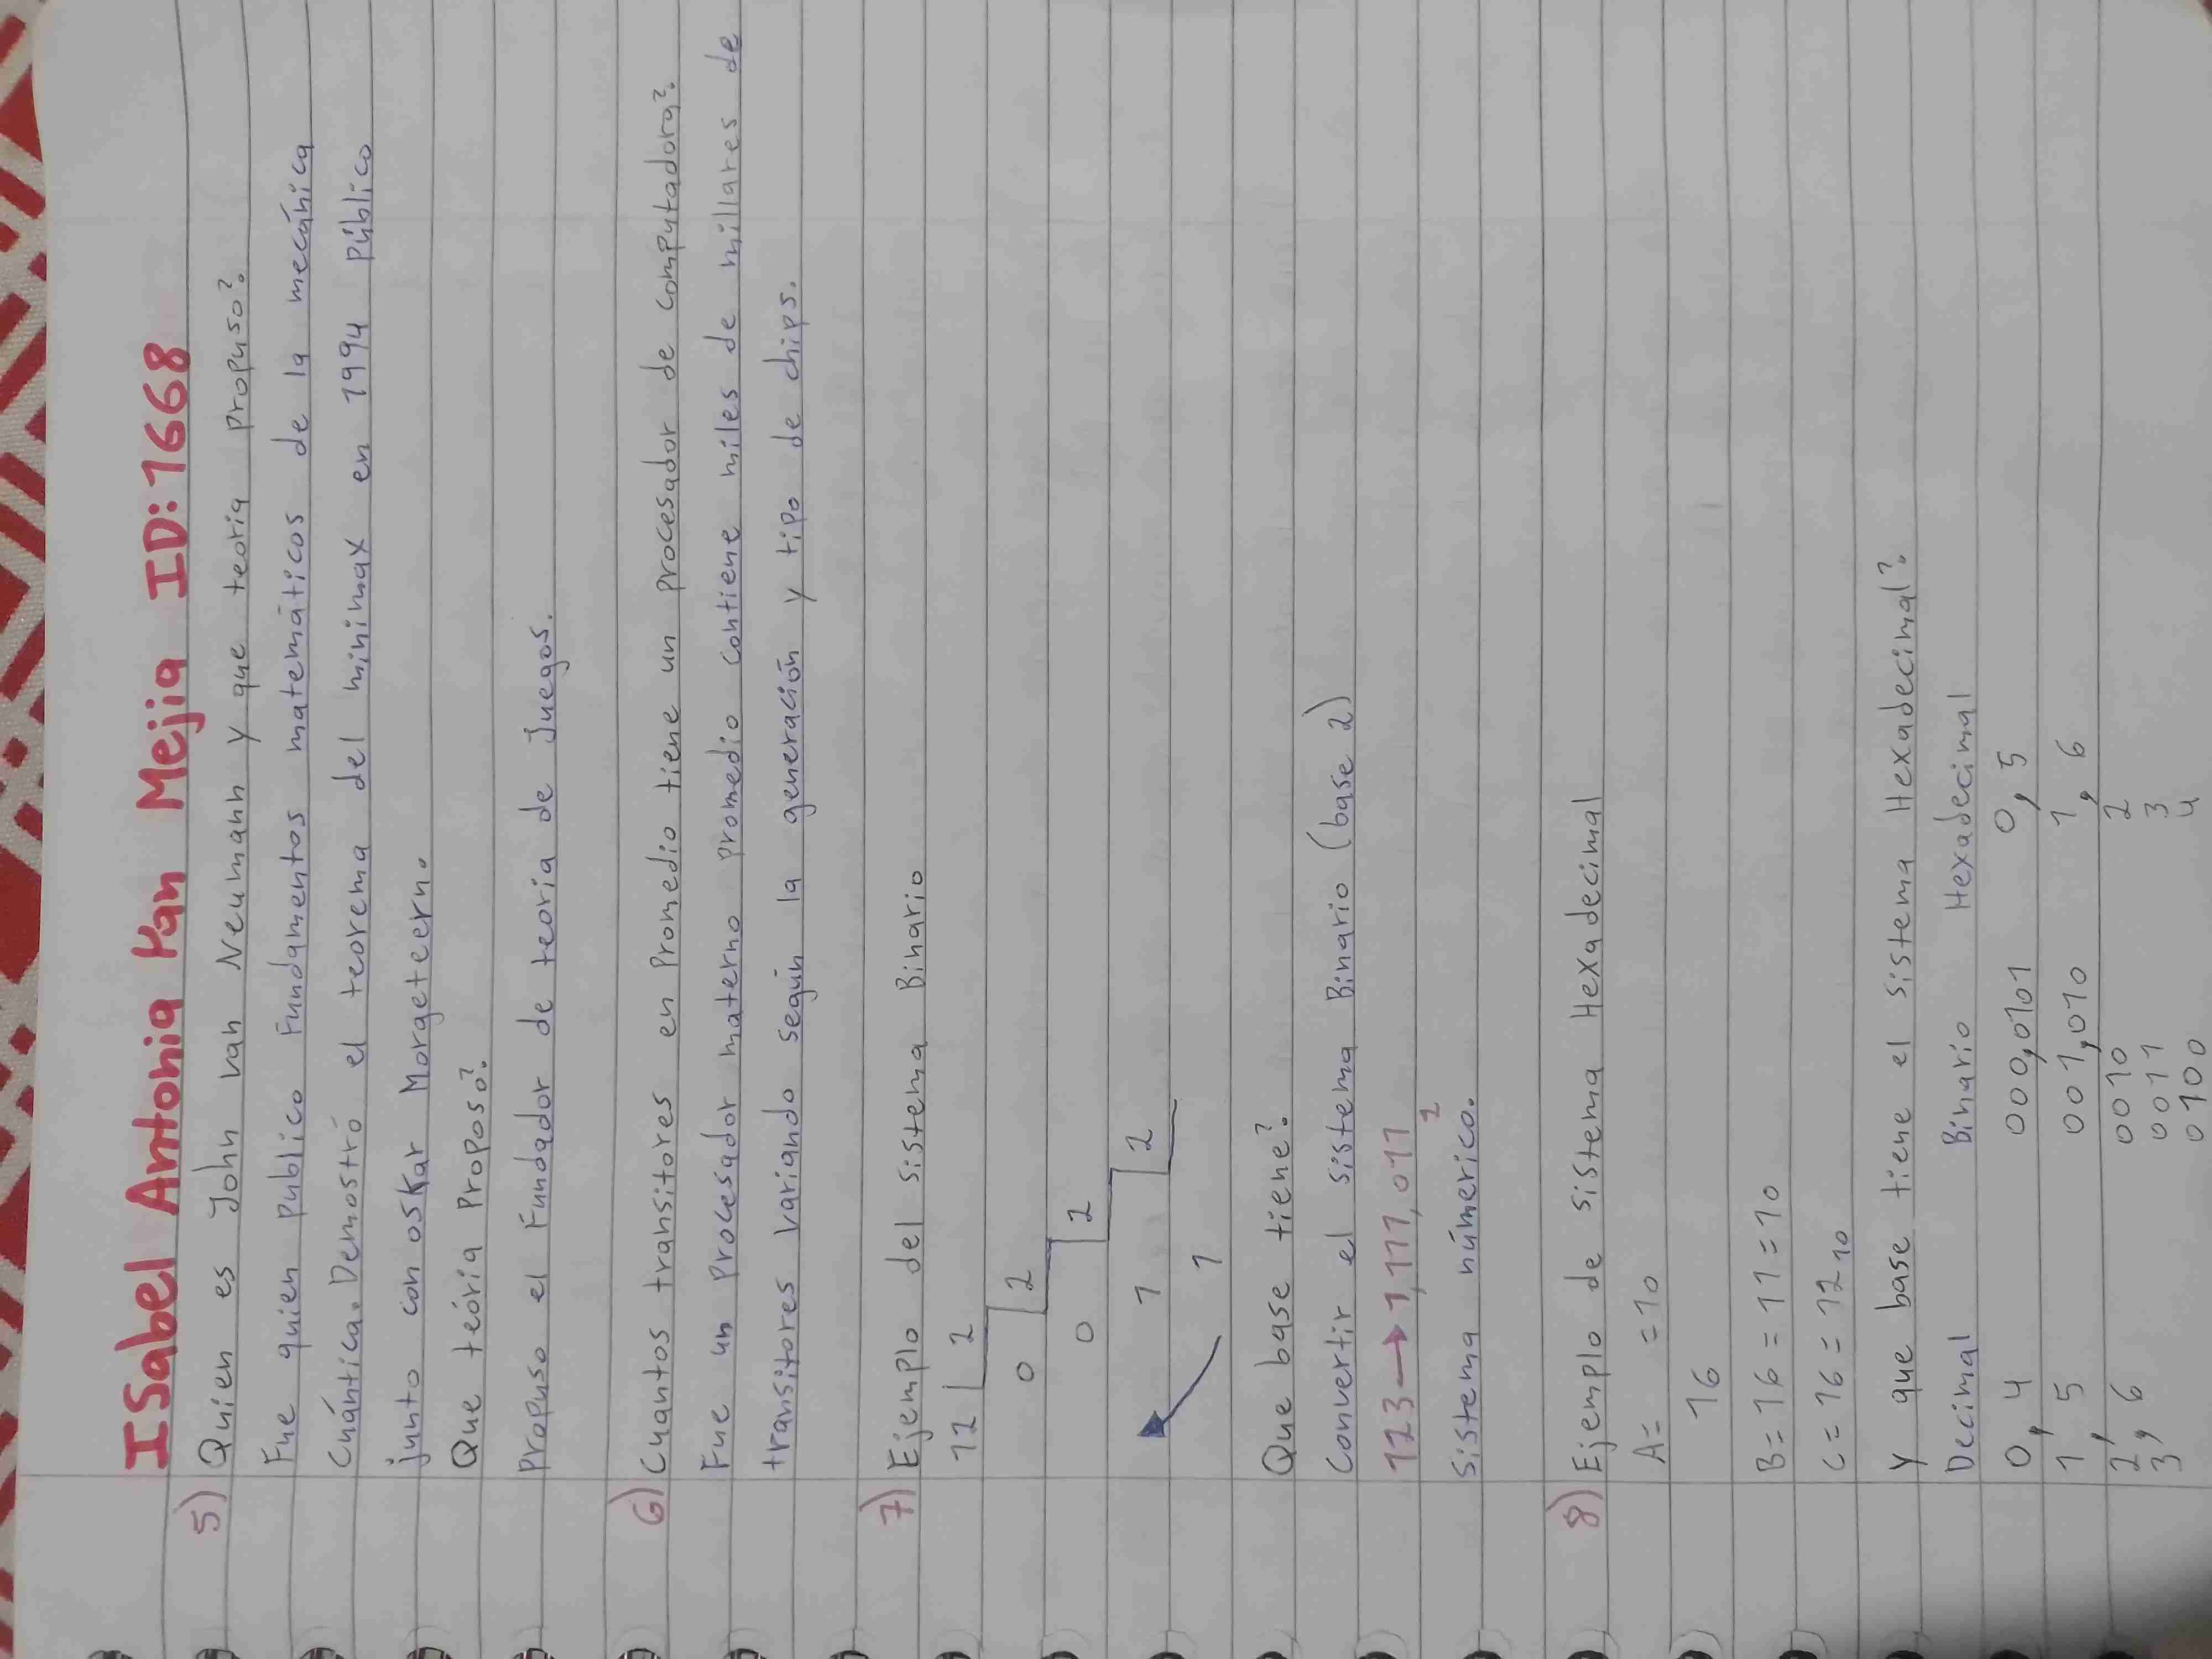 ISabel Antonia Kan Mejia ID:1668
5) Quien es John van Neumann y que teoria propuso?.
Fue quien publico Fundamentos matemáticos de la mecánica
Cuántica. Demostró el teorema del minimax en 1994 público
junto con oskar Morgeteern.
Que teória Proposo?
Propuso el Fundador de teoria de juegos.
6) Cuantos transitores en Promedio tiene un procesador de computadora?.
Fue un Procesador materno promedio contiene miles de millares de
transitores variando según la generación y tipo de chips.
7) Ejemplo del sistema Binario
12 2
0 2
0 2
1 2
1
Que base tiene?
Convertir el sistema Binario (base 2)
123→1,111,011
2
Sistema númerico.
8) Ejemplo de sistema Hexadecimal
A= =10
16
B=16=11=10
C=16=12 10
y que base tiene el sistema Hexadecimal?.
Decimal Binario Hexadecimal
0, 4 000,0101 0, 5
1, 5 001,010 1, 6
2, 6 0010 2
3 0011 3
0100 4